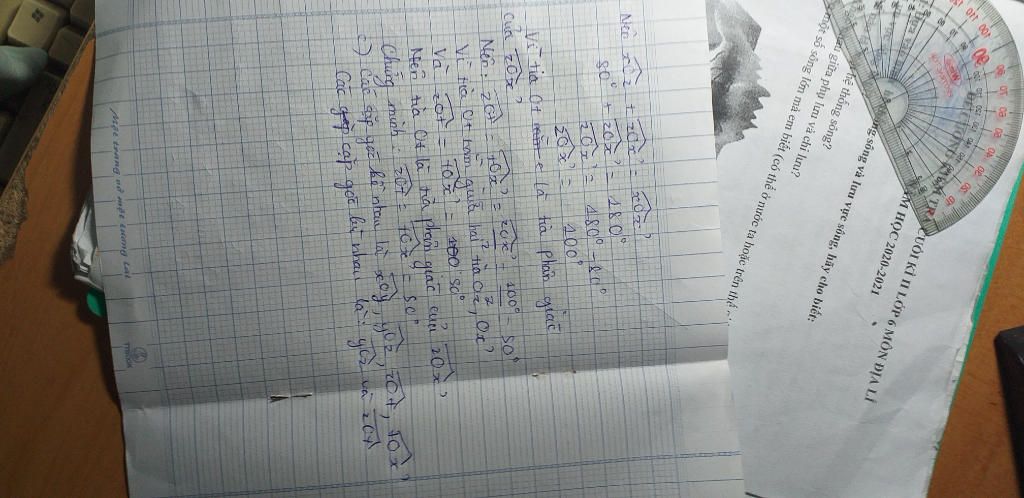 Nên xOz + zOx' = xOx'
80° + zOx' = 180°
zOx' = 180° - 80°
zOx' = 100°
Vì tia Ot là tia phân giác
của zOx'
Nên: zOt = tOx' = zOx'/2 = 100°/2 = 50°
Vì tia Ot nằm giữa hai tia Oz, Ox'
Và zOt = tOx' = 50°
Nên tia Ot là tia phân giác của zOx'
Chứng minh: zOt = tOx' = 50°
c) Các cặp góc kề nhau là xOy, yOz, zOt, tOx'
Các cặp góc bù nhau là: yOz và zOt
MỘT TRANG VỞ MỘT TƯƠNG LAI
CUỐI KÌ II LỚP 6 MÔN ĐỊA LÍ
ĂM HỌC 2020-2021
ng sông và lưu vực sông, hãy cho biết:
hệ thống sông?
u giữa phụ lưu và chi lưu?
một số sông lớn mà em biết (có thể ở nước ta hoặc trên thế